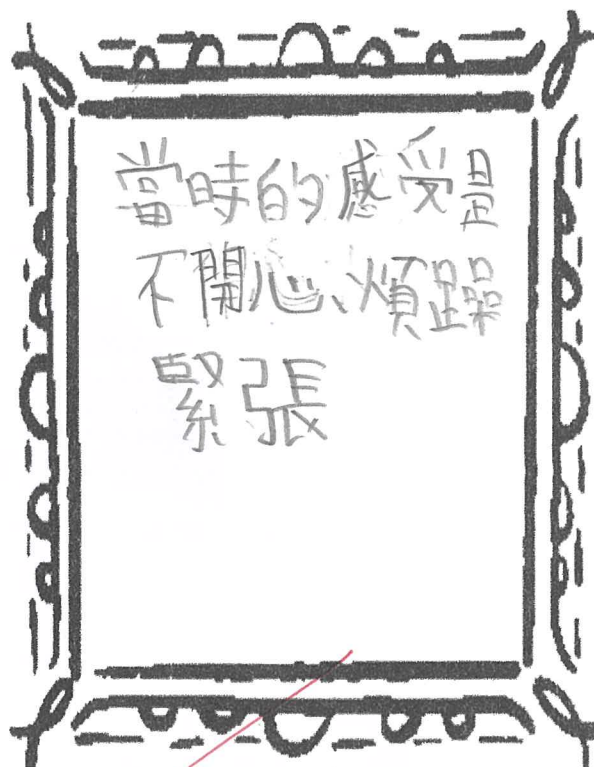 當時的感受是
不開心、煩躁
緊張